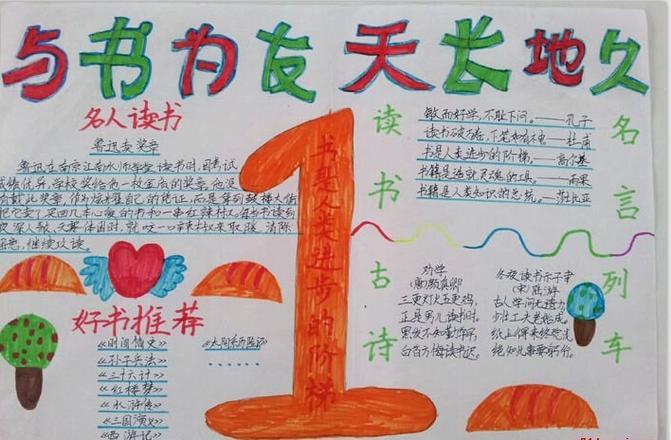 与书为友 天长地久
名人读书
鲁迅卖奖章
鲁迅在南京江南水师学堂读书时,因考试
成绩优异,学校奖给他一枚金质的奖章。他没
有戴此奖章,作为炫耀自己的凭证,而是拿到鼓楼大街
把它卖了,买回几本心爱的书和一串红辣椒。每当书读到
夜深人静、天寒体困时,就咬一口辣椒来取暖、清除
困意,继续攻读。
好书推荐
《时间简史》
《孙子兵法》
《三十六计》
《红楼梦》
《水浒传》
《三国演义》
《西游记》
书是人类进步的阶梯
读书古诗
敏而好学,不耻下问。——孔子
读书破万卷,下笔如有神——杜甫
书是人类进步的阶梯,——高尔基
书籍是造就灵魂的工具。——雨果
书籍是人类知识的总统。——莎士比亚
名言列车
劝学
(唐)颜真卿
三更灯火五更鸡,
正是男儿读书时。
黑发不知勤学早,
白首方悔读书迟。
冬夜读书示子聿
(宋)陆游
古人学问无遗力,
少壮工夫老始成。
纸上得来终觉浅,
绝知此事要躬行。